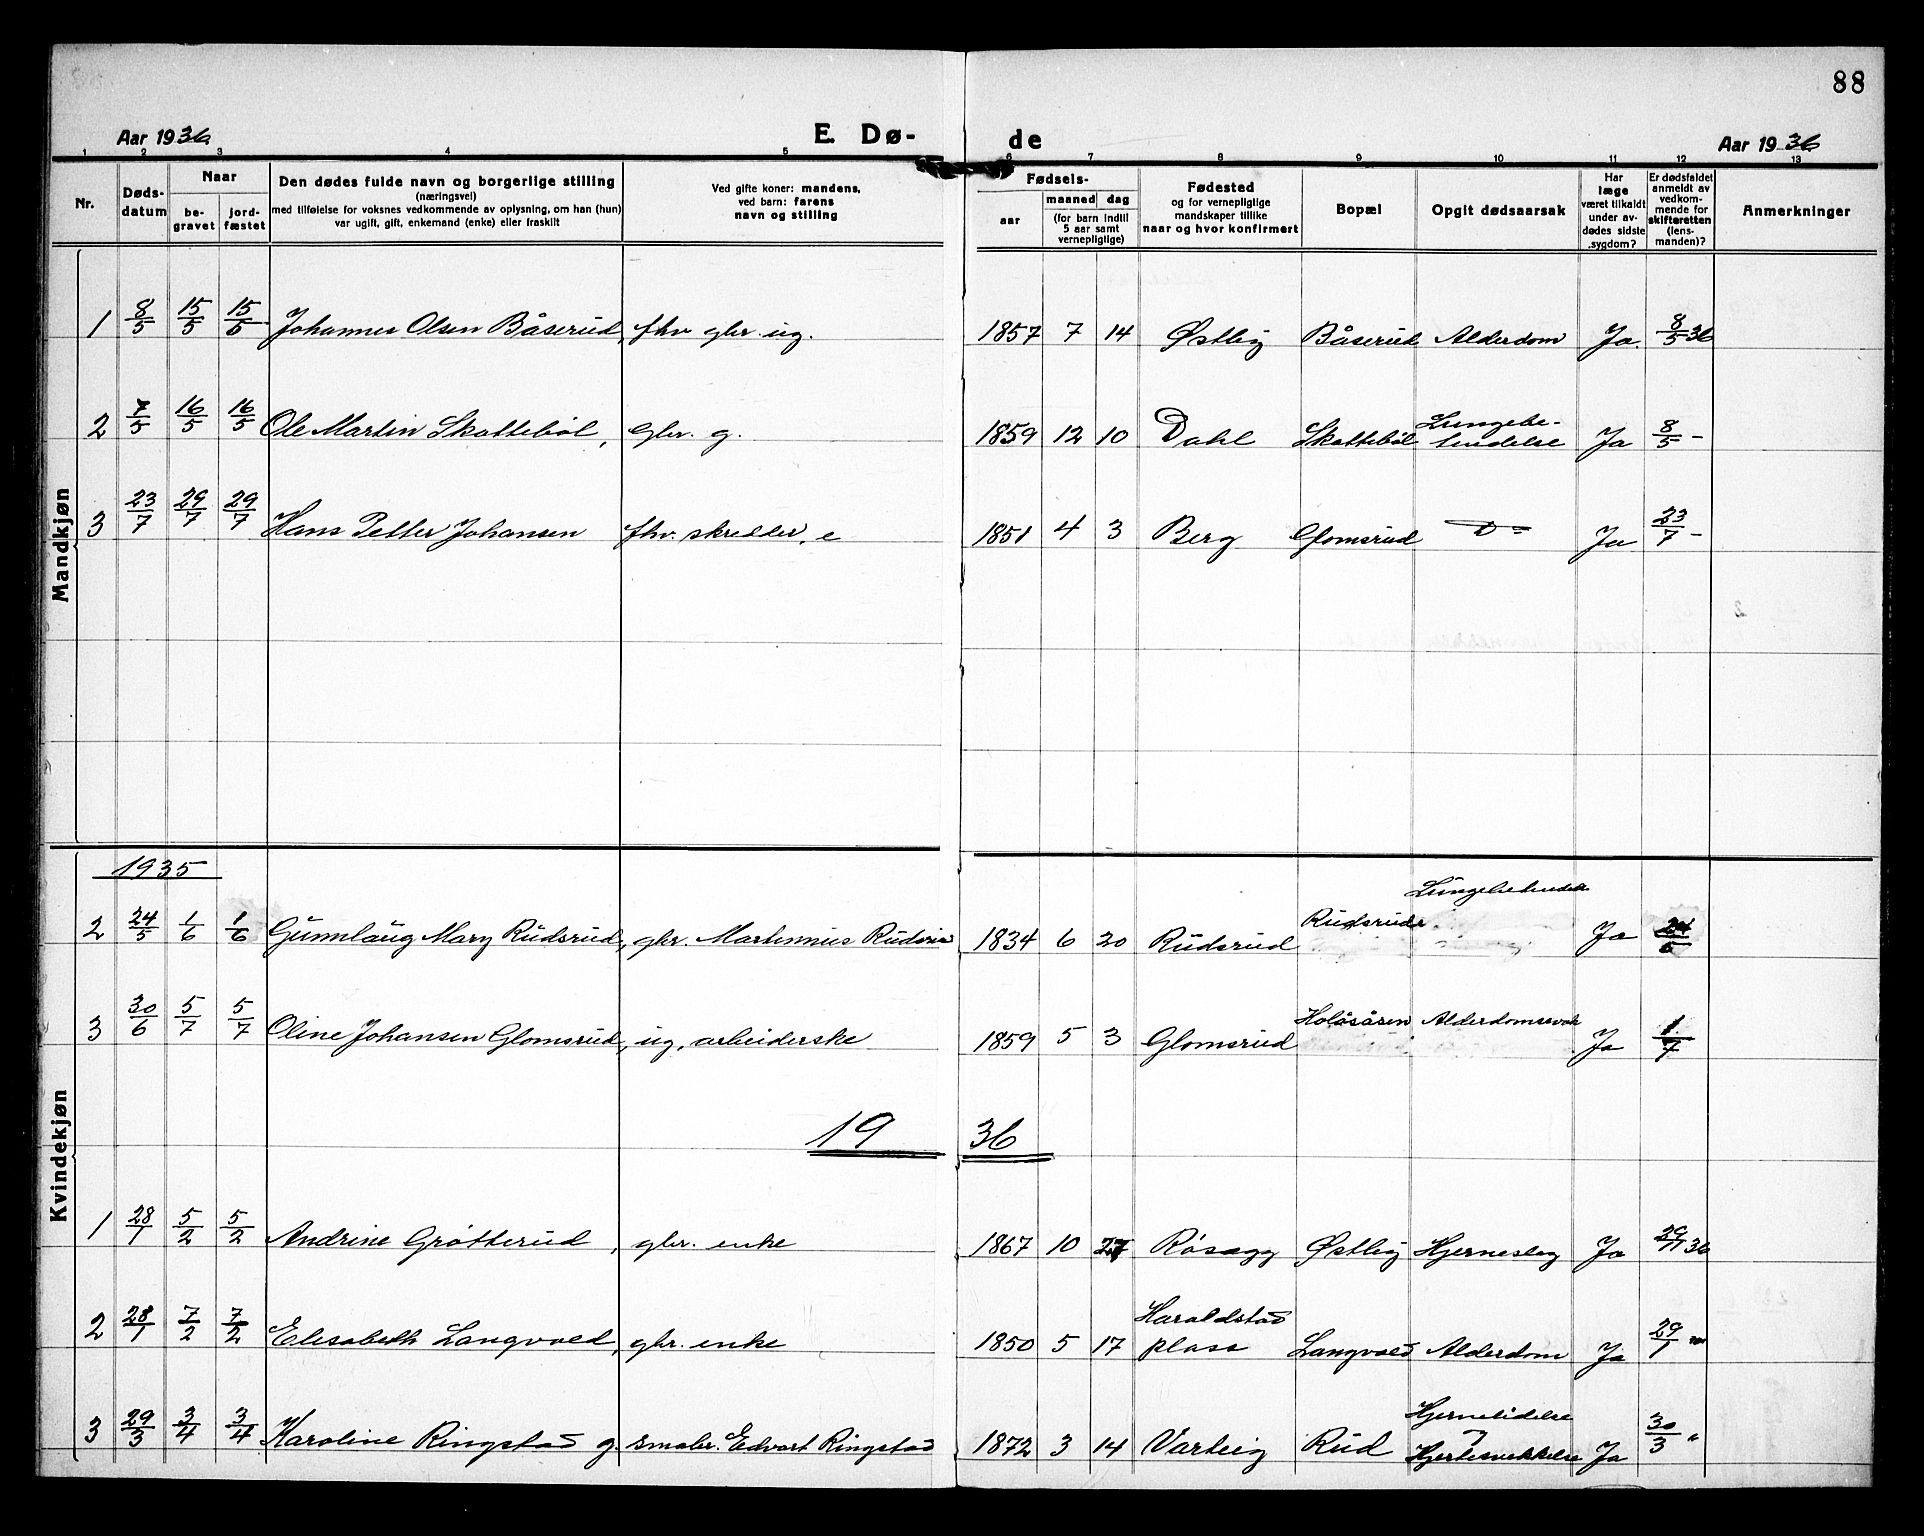 88
Aar 1936 E. Dø- de Aar 1936
1 2 3 4 5 6 7 8 9 10 11 12 13
Nr. Døds-datum Naar be-gravet jord-fæstet Den dødes fulde navn og borgerlige stilling (næringsvei) med tilføielse for voksnes vedkommende av oplysning, om han (hun) var ugift, gift, enkemand (enke) eller fraskilt Ved gifte koner: mandens, ved barn: farens navn og stilling Fødsels- aar maaned dag (for barn indtil 5 aar samt vernepligtige) Fødested og for vernepligtige mandskaper tillike naar og hvor konfirmert Bopæl Opgit dødsaarsak Har læge været tilkaldt under av-dødes sidste sygdom? Er dødsfaldet anmeldt av vedkom-mende for skifteretten (lens-manden)? Anmerkninger
Mandkjøn
1 8/5 15/5 15/5 Johannes Olsen Båserud, fhv. gbr. ug. 1857 7 14 Østby Båserud Alderdom Ja. 8/5 36
2 7/5 16/5 16/5 Ole Martin Skattebøl, gbr. g. 1859 12 10 Dahl Skattebøl Lungebe-tendelse Ja 8/5 -
3 23/7 29/7 29/7 Hans Petter Johansen fhv. skredder, e 1851 4 3 Berg Glomsrud D= Ja 23/7 -
Kvindekjøn
1935
2 24/5 1/6 1/6 Gunnlaug Mary Rudsrud, gbr. Martinius 1834 6 20 Rudsrud Ja 24/5
3 30/6 5/7 5/7 Oline Johansen Glomsrud, ug, arbeiderske 1859 5 3 Glomsrud Holåsåsen Ja 1/7
19 36
1 28/1 5/2 5/2 Andrine Grøtterud, gbr. enke 1867 10 27 Røsægg Østby Hjerneslag Ja 29/1 36
2 28/1 7/2 7/2 Elisabeth Langvold, gbr. enke 1850 5 17 Haraldstad plass Langvold Alderdom Ja 29/1 "
3 29/3 3/4 3/4 Karoline Ringstad g. smabr. Edvart Ringstad 1872 3 14 Varteig Rud Hjernelidelse Hjertesvekkelse Ja 30/3 "